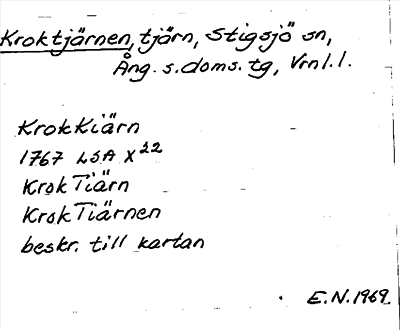 Kroktjärnen, tjärn, Stigsjö sn,
Ång. s. doms. tg, Vrnl. l.
KrokKiärn
1767 LSA X22
KrokTiärn
KrokTiärnen
beskr. till kartan
E.N. 1969.